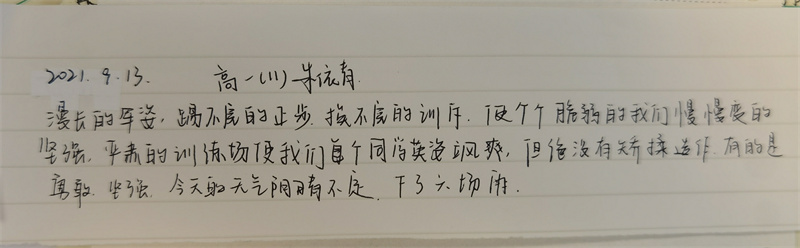 2021.9.13. 高一(11) 朱依青.
漫长的军姿,踢不完的正步.挨不完的训斥.使个个脆弱的我们慢慢变的
坚强.严肃的训练场使我们每个同学英姿飒爽,但绝没有矫揉造作.有的是
勇敢.坚强.今天的天气阴晴不定.下了六场雨.